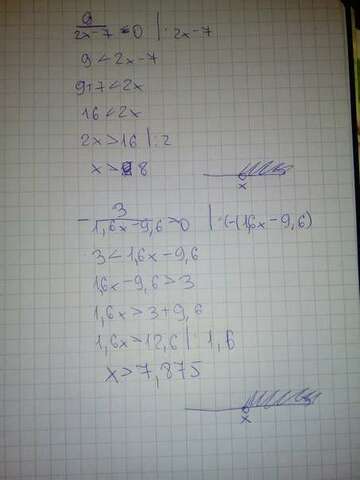 9
2x-7 < 0 | · 2x-7
9 < 2x-7
9+7 < 2x
16 < 2x
2x > 16 | : 2
x > 8
x
- 3
1,6x-9,6 > 0 | · (-(1,6x-9,6)
3 < 1,6x-9,6
1,6x-9,6 > 3
1,6x > 3+9,6
1,6x > 12,6 | : 1,6
x > 7,875
x